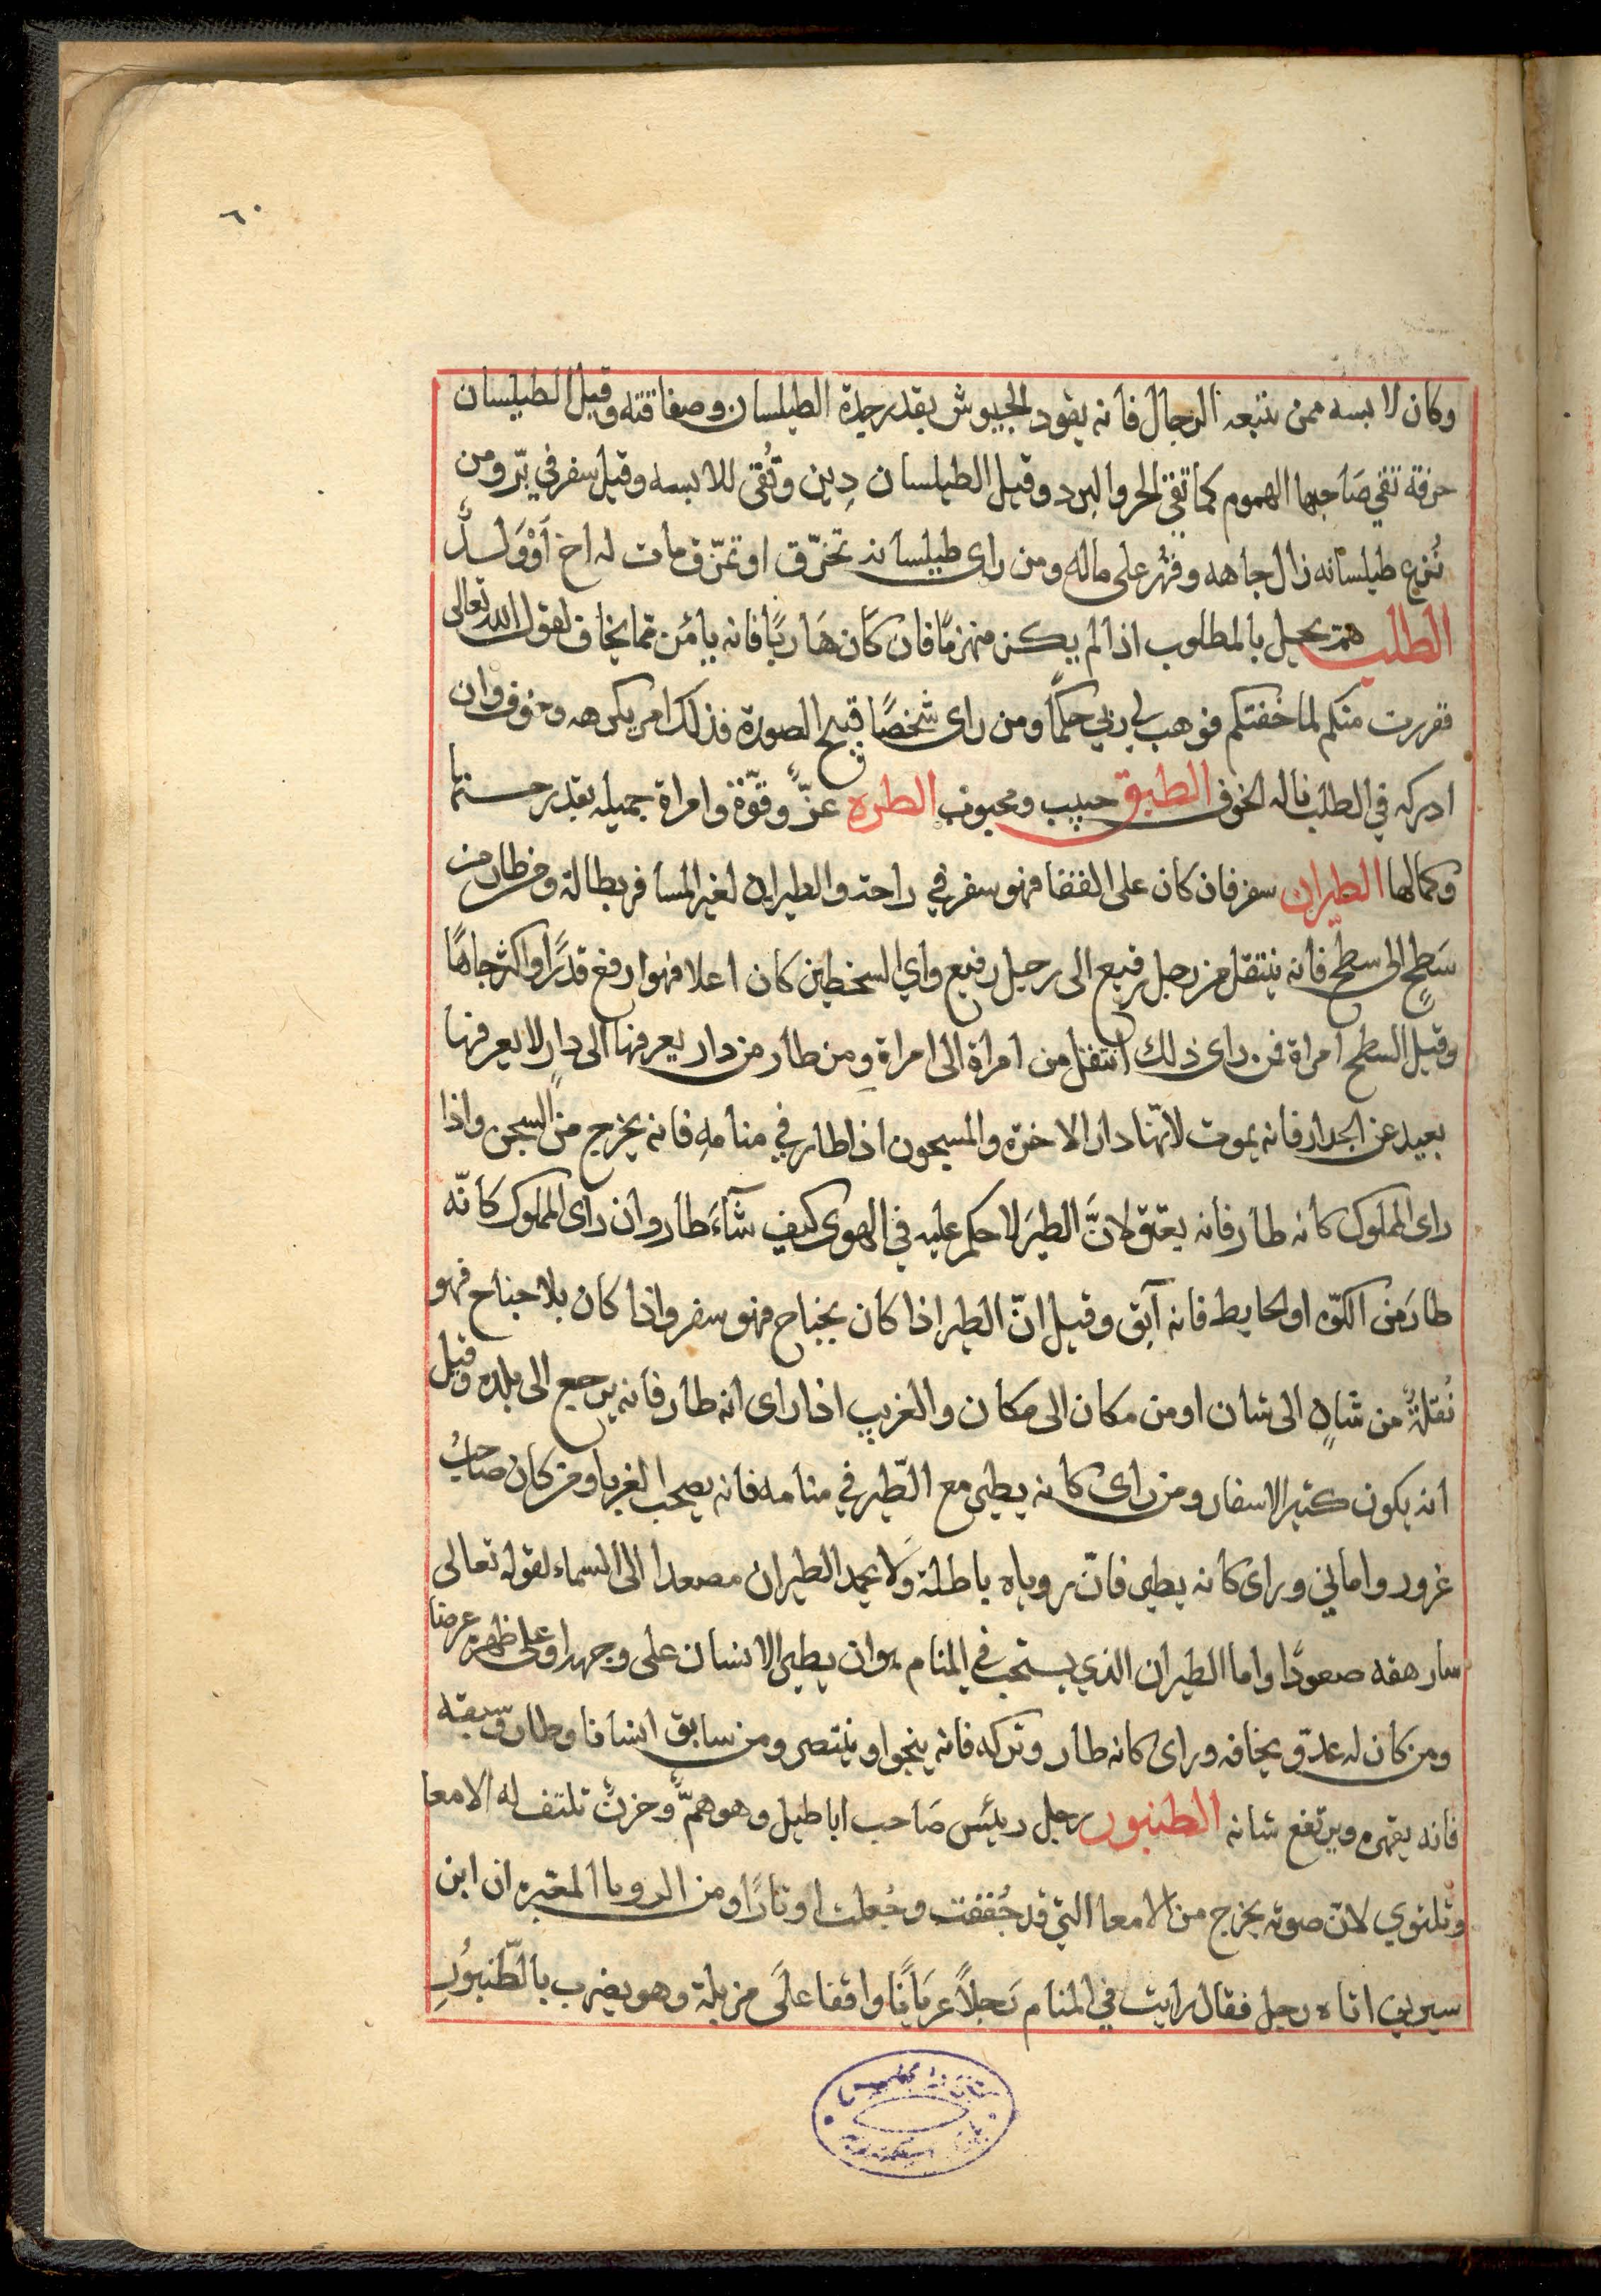 ٦٠
وكان لابسه ممن تتبعه الرجال فانه يقود الجيوش بقدر جدة الطيلسان وصفاقته وقيل الطيلسان
حرفة تقي صَاحبها الهموم كما تقي الحر والبرد وقيل الطيلسان دِين وتُقى للابسه وقيل سفر في بّر ومن
نُزع طيلسانه زال جاهه وقُهر على ماله ومن راى طيلسانه تخرّق او تمزّق مات له اخ أوْ وَلدٌ
الطلب همّ يحيل بالمطلوب اذا لم يكن منهزمًا فان كان هَاربًا فانه يأمن مما يخاف لقول الله تعالى
ففررت منكم لما خفتكم فوهب لي ربي حكمًا ومن راى شخصًا قبيح الصورة فذلك امر يكرهه وخوف وان
ادركه في الطلب ناله الخوف الطبق حبيب ومحبوب الطره عزٌّ وقوّة وامراة جميله بقدر حسنها
وكمالها الطيران سفر فان كان على القفا فهو سفر في راحة والطيران لغير المسافر بطالة ومن طار من
سَطحٍ الى سطح فانه ينتقل من رجل رفيع الى رجيل رفيع واي السطحين كان اعلا فهو ارفع قدرًا واكثر جاهًا
وقيل السطح امراة فمن راى ذلك انتقل من امراة الى امراة ومن طار من دار يعرفها الى دارٍ لا يعرفها
بعيد عن الجدار فانه يموت لانّها دار الاخره والمسجون اذا طار في منامهِ فانه يخرج من السجن واذا
راى المملوك كانه طار فانه يعتق لانَّ الطيَر لا حكم عليه في الهوى كيف شآءَ طار وان راى المملوك كانّه
طارَ من الكوّه او الحايط فانه آبق وقيل انّ الطير اذا كان بجناح فهو سفر واذا كان بلا جناح فهو
نُقلةٌ من شانٍ الى شان او من مكان الى مكان والغريب اذا راى انه طار فانه يرجع الى بلده وقيل
انه يكون كثير الاسفار ومن راى كانه يطير مع الطّير في منامه فانه يصحب الغربا ومن كان صاحبُ
غرور واماني وراى كانه يطير فانّ روياه باطلة وَلا يحمد الطيران مصعدا الى السماء لقوله تعالى
سارهقه صعودًا واما الطيران الذي يستحب في المنام هو ان يطير الانسان على وجهه او على ظهره عرضا
ومن كان له عدوّ يخافه وراى كانه طار وتركه فانه ينجوا وينتصر ومن سابق انسانا وطار وسبقه
فانه يقهره ويرتفع شانه الطنبور رجل رئيس صَاحب اباطيل وهو همٌّ وحزنٌ تلتف له الامعا
وتلتوي لانّ صوته يخرج من الامعا التي قد جُففت وجُعلت اوتارًا ومن الرويا المعتبره ان ابن
سيرين اتاه رجل فقال رايت في المنام رَجلاً عريَانًا واقفا علَى مزبلة وهو يضرب بالطّنبُورِ